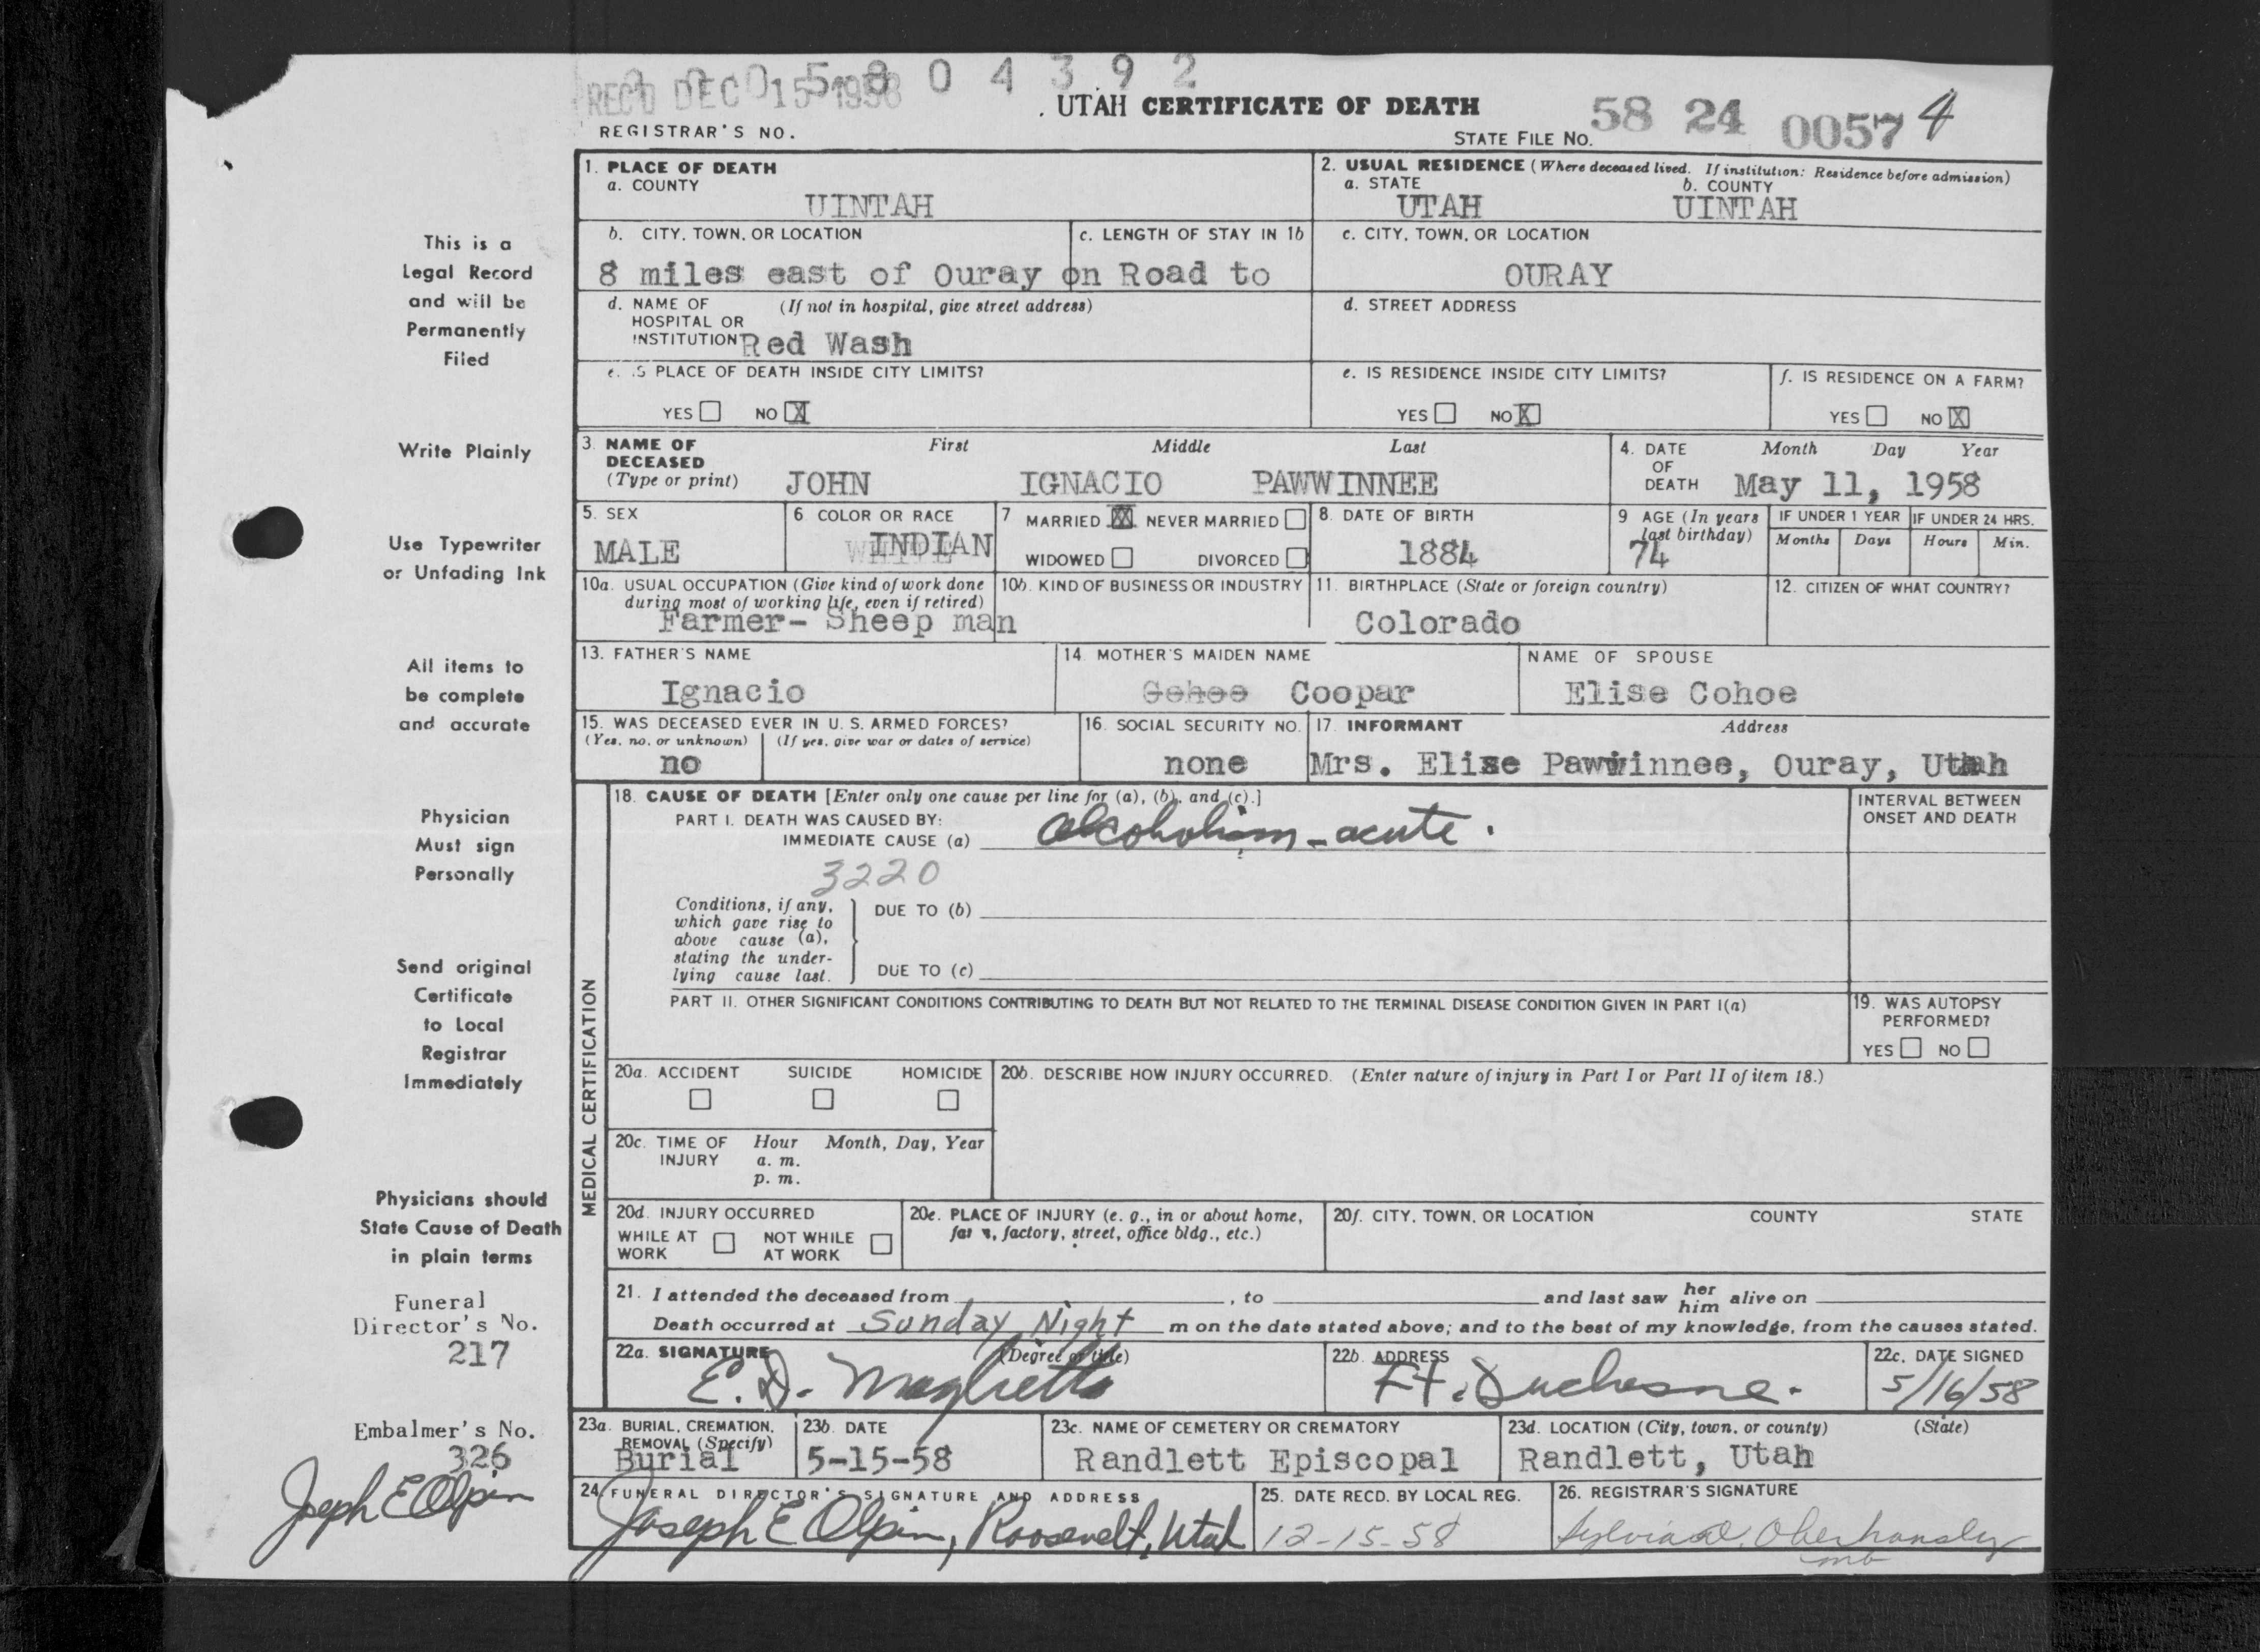 REC'D DEC 15 1958
0 5 8 0 4 3 9 2
UTAH CERTIFICATE OF DEATH
REGISTRAR'S NO.
STATE FILE NO. 58 24 0057 4
1. PLACE OF DEATH
a. COUNTY
UINTAH
2. USUAL RESIDENCE (Where deceased lived. If institution: Residence before admission)
a. STATE b. COUNTY
UTAH UINTAH
b. CITY, TOWN, OR LOCATION
c. LENGTH OF STAY IN 1b
8 miles east of Ouray on Road to
c. CITY, TOWN, OR LOCATION
OURAY
d. NAME OF HOSPITAL OR INSTITUTION (If not in hospital, give street address)
Red Wash
d. STREET ADDRESS
e. IS PLACE OF DEATH INSIDE CITY LIMITS?
YES NO X
e. IS RESIDENCE INSIDE CITY LIMITS?
YES NO X
f. IS RESIDENCE ON A FARM?
YES NO X
3. NAME OF DECEASED (Type or print)
First Middle Last
JOHN IGNACIO PAWWINNEE
4. DATE OF DEATH
Month Day Year
May 11, 1958
5. SEX
MALE
6. COLOR OR RACE
INDIAN
7. MARRIED X NEVER MARRIED
WIDOWED DIVORCED
8. DATE OF BIRTH
1884
9. AGE (In years last birthday)
74
IF UNDER 1 YEAR
Months Days
IF UNDER 24 HRS.
Hours Min.
10a. USUAL OCCUPATION (Give kind of work done during most of working life, even if retired)
Farmer- Sheep man
10b. KIND OF BUSINESS OR INDUSTRY
11. BIRTHPLACE (State or foreign country)
Colorado
12. CITIZEN OF WHAT COUNTRY?
13. FATHER'S NAME
Ignacio
14. MOTHER'S MAIDEN NAME
Coopar
NAME OF SPOUSE
Elise Cohoe
15. WAS DECEASED EVER IN U. S. ARMED FORCES?
(Yes, no, or unknown) (If yes, give war or dates of service)
no
16. SOCIAL SECURITY NO.
none
17. INFORMANT Address
Mrs. Elise Pawwinnee, Ouray, Utah
MEDICAL CERTIFICATION
18. CAUSE OF DEATH [Enter only one cause per line for (a), (b), and (c).]
PART I. DEATH WAS CAUSED BY:
IMMEDIATE CAUSE (a) alcoholism - acute.
3220
Conditions, if any, which gave rise to above cause (a), stating the underlying cause last.
DUE TO (b)
DUE TO (c)
INTERVAL BETWEEN ONSET AND DEATH
PART II. OTHER SIGNIFICANT CONDITIONS CONTRIBUTING TO DEATH BUT NOT RELATED TO THE TERMINAL DISEASE CONDITION GIVEN IN PART I(a)
19. WAS AUTOPSY PERFORMED?
YES NO
20a. ACCIDENT SUICIDE HOMICIDE
20b. DESCRIBE HOW INJURY OCCURRED. (Enter nature of injury in Part I or Part II of item 18.)
20c. TIME OF INJURY Hour Month, Day, Year
a. m.
p. m.
20d. INJURY OCCURRED
WHILE AT WORK NOT WHILE AT WORK
20e. PLACE OF INJURY (e. g., in or about home, farm, factory, street, office bldg., etc.)
20f. CITY, TOWN, OR LOCATION COUNTY STATE
21. I attended the deceased from , to and last saw her him alive on
Death occurred at Sunday Night m on the date stated above; and to the best of my knowledge, from the causes stated.
22a. SIGNATURE (Degree or title)
E. D.
22b. ADDRESS
Ft. Duchesne.
22c. DATE SIGNED
5/16/58
23a. BURIAL, CREMATION, REMOVAL (Specify)
Burial
23b. DATE
5-15-58
23c. NAME OF CEMETERY OR CREMATORY
Randlett Episcopal
23d. LOCATION (City, town, or county) (State)
Randlett, Utah
24. FUNERAL DIRECTOR'S SIGNATURE AND ADDRESS
Joseph E Olpin, Roosevelt, Utah
25. DATE RECD. BY LOCAL REG.
12-15-58
26. REGISTRAR'S SIGNATURE
Oberhansly
mb
This is a
Legal Record
and will be
Permanently
Filed
Write Plainly
Use Typewriter
or Unfading Ink
All items to
be complete
and accurate
Physician
Must sign
Personally
Send original
Certificate
to Local
Registrar
Immediately
Physicians should
State Cause of Death
in plain terms
Funeral
Director's No.
217
Embalmer's No.
326
Joseph E Olpin